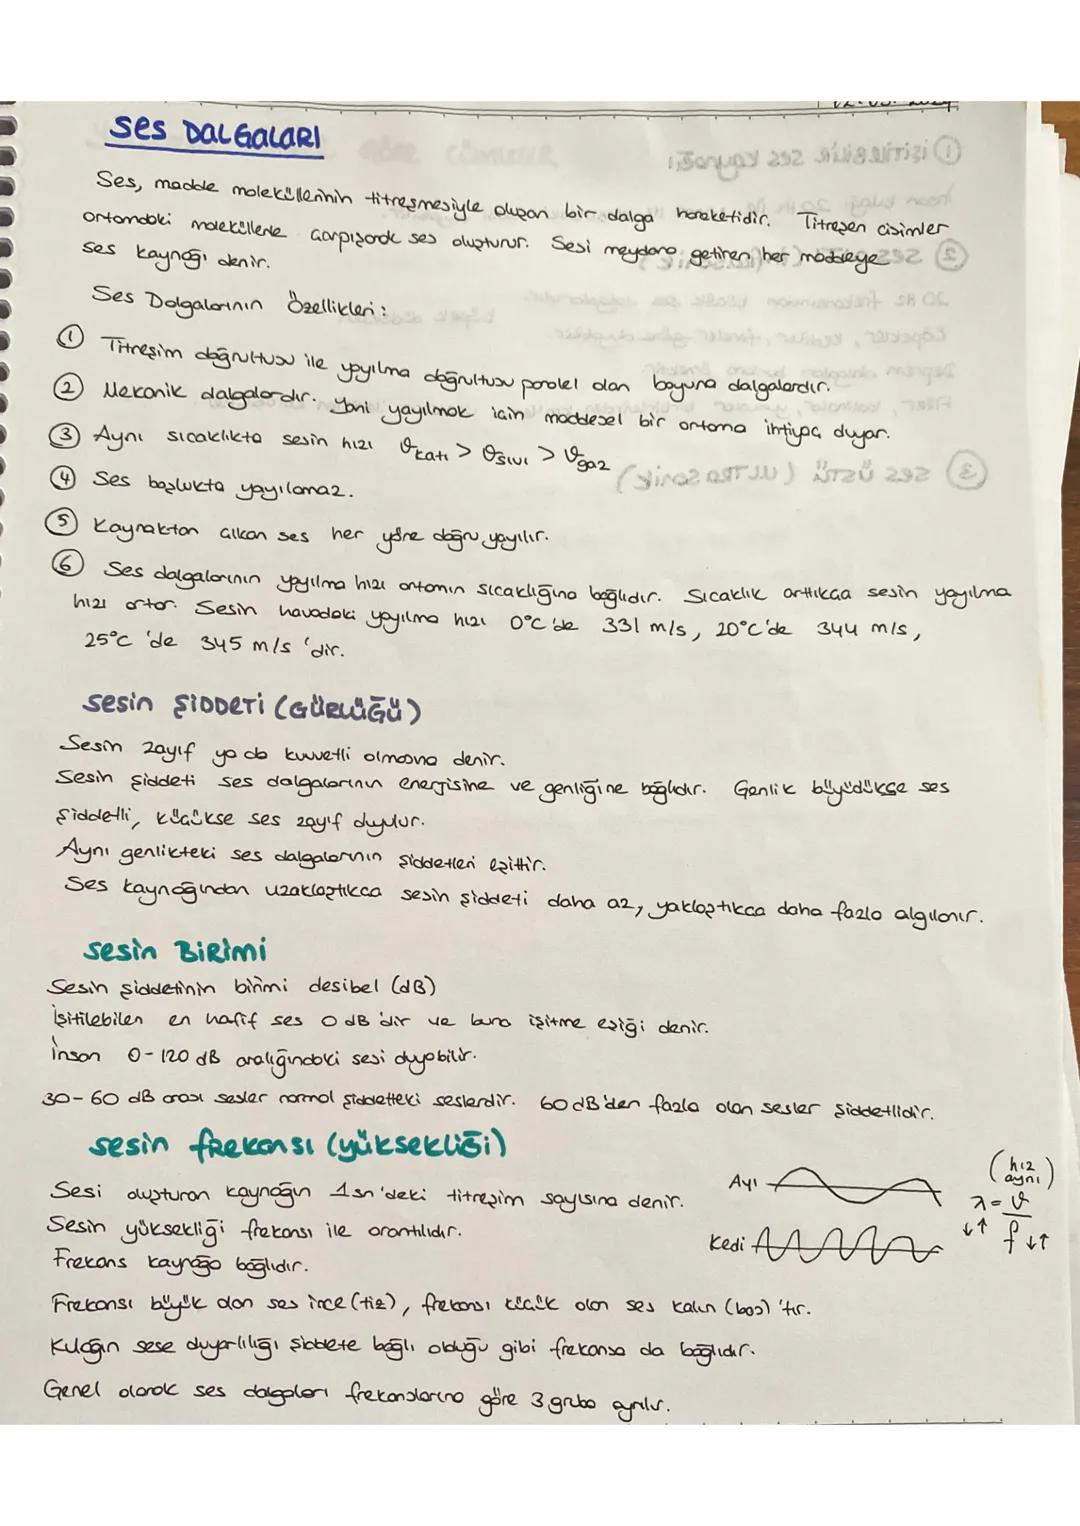 ses DALGALARI
Ses, madde moleküllerinin titreşmesiyle oluşan bir dalga hareketidir. Titreşen cisimler
ortamdaki moleküllerle çarpışarak ses oluşturur. Sesi meydana getiren her maddeye
ses kaynağı denir.
Ses Dalgalarının Özellikleri:
① Titreşim doğrultusu ile yayılma doğrultusu paralel olan boyuna dalgalardır.
② Mekanik dalgalardır. Yani yayılmak için maddesel bir ortama ihtiyaç duyar.
③ Aynı sıcaklıkta sesin hızı ϑkatı > ϑsıvı > ϑgaz
④ Ses boşlukta yayılamaz.
⑤ Kaynaktan çıkan ses her yöne doğru yayılır.
⑥ Ses dalgalarının yayılma hızı ortamın sıcaklığına bağlıdır. Sıcaklık arttıkça sesin yayılma
hızı artar. Sesin havadaki yayılma hızı 0°C'de 331 m/s, 20°C'de 344 m/s,
25°C 'de 345 m/s 'dir.
sesin ŞİDDETİ (GÜRLÜĞÜ)
Sesin zayıf ya da kuvvetli olmasına denir.
Sesin şiddeti ses dalgalarının enerjisine ve genliğine bağlıdır. Genlik büyüdükçe ses
şiddetli, küçükse ses zayıf duyulur.
Aynı genlikteki ses dalgalarının şiddetleri eşittir.
Ses kaynağından uzaklaştıkça sesin şiddeti daha az, yaklaştıkça daha fazla algılanır.
sesin BİRİMİ
Sesin şiddetinin birimi desibel (dB)
İşitilebilen en hafif ses 0 dB'dir ve buna işitme eşiği denir.
İnsan 0-120 dB aralığındaki sesi duyabilir.
30-60 dB arası sesler normal şiddetteki seslerdir. 60 dB'den fazla olan sesler şiddetlidir.
sesin frekansı (yüksekliği)
Sesi oluşturan kaynağın 1sn'deki titreşim sayısına denir.
Sesin yüksekliği frekansı ile orantılıdır.
Frekans kaynağa bağlıdır.
Ayı
Kedi
(hız aynı)
λ = ϑ
↓↑ f ↓↑
Frekansı büyük olan ses ince (tiz), frekansı küçük olan ses kalın (bas) 'tır.
Kulağın sese duyarlılığı şiddete bağlı olduğu gibi frekansa da bağlıdır.
Genel olarak ses dalgaları frekanslarına göre 3 gruba ayrılır.